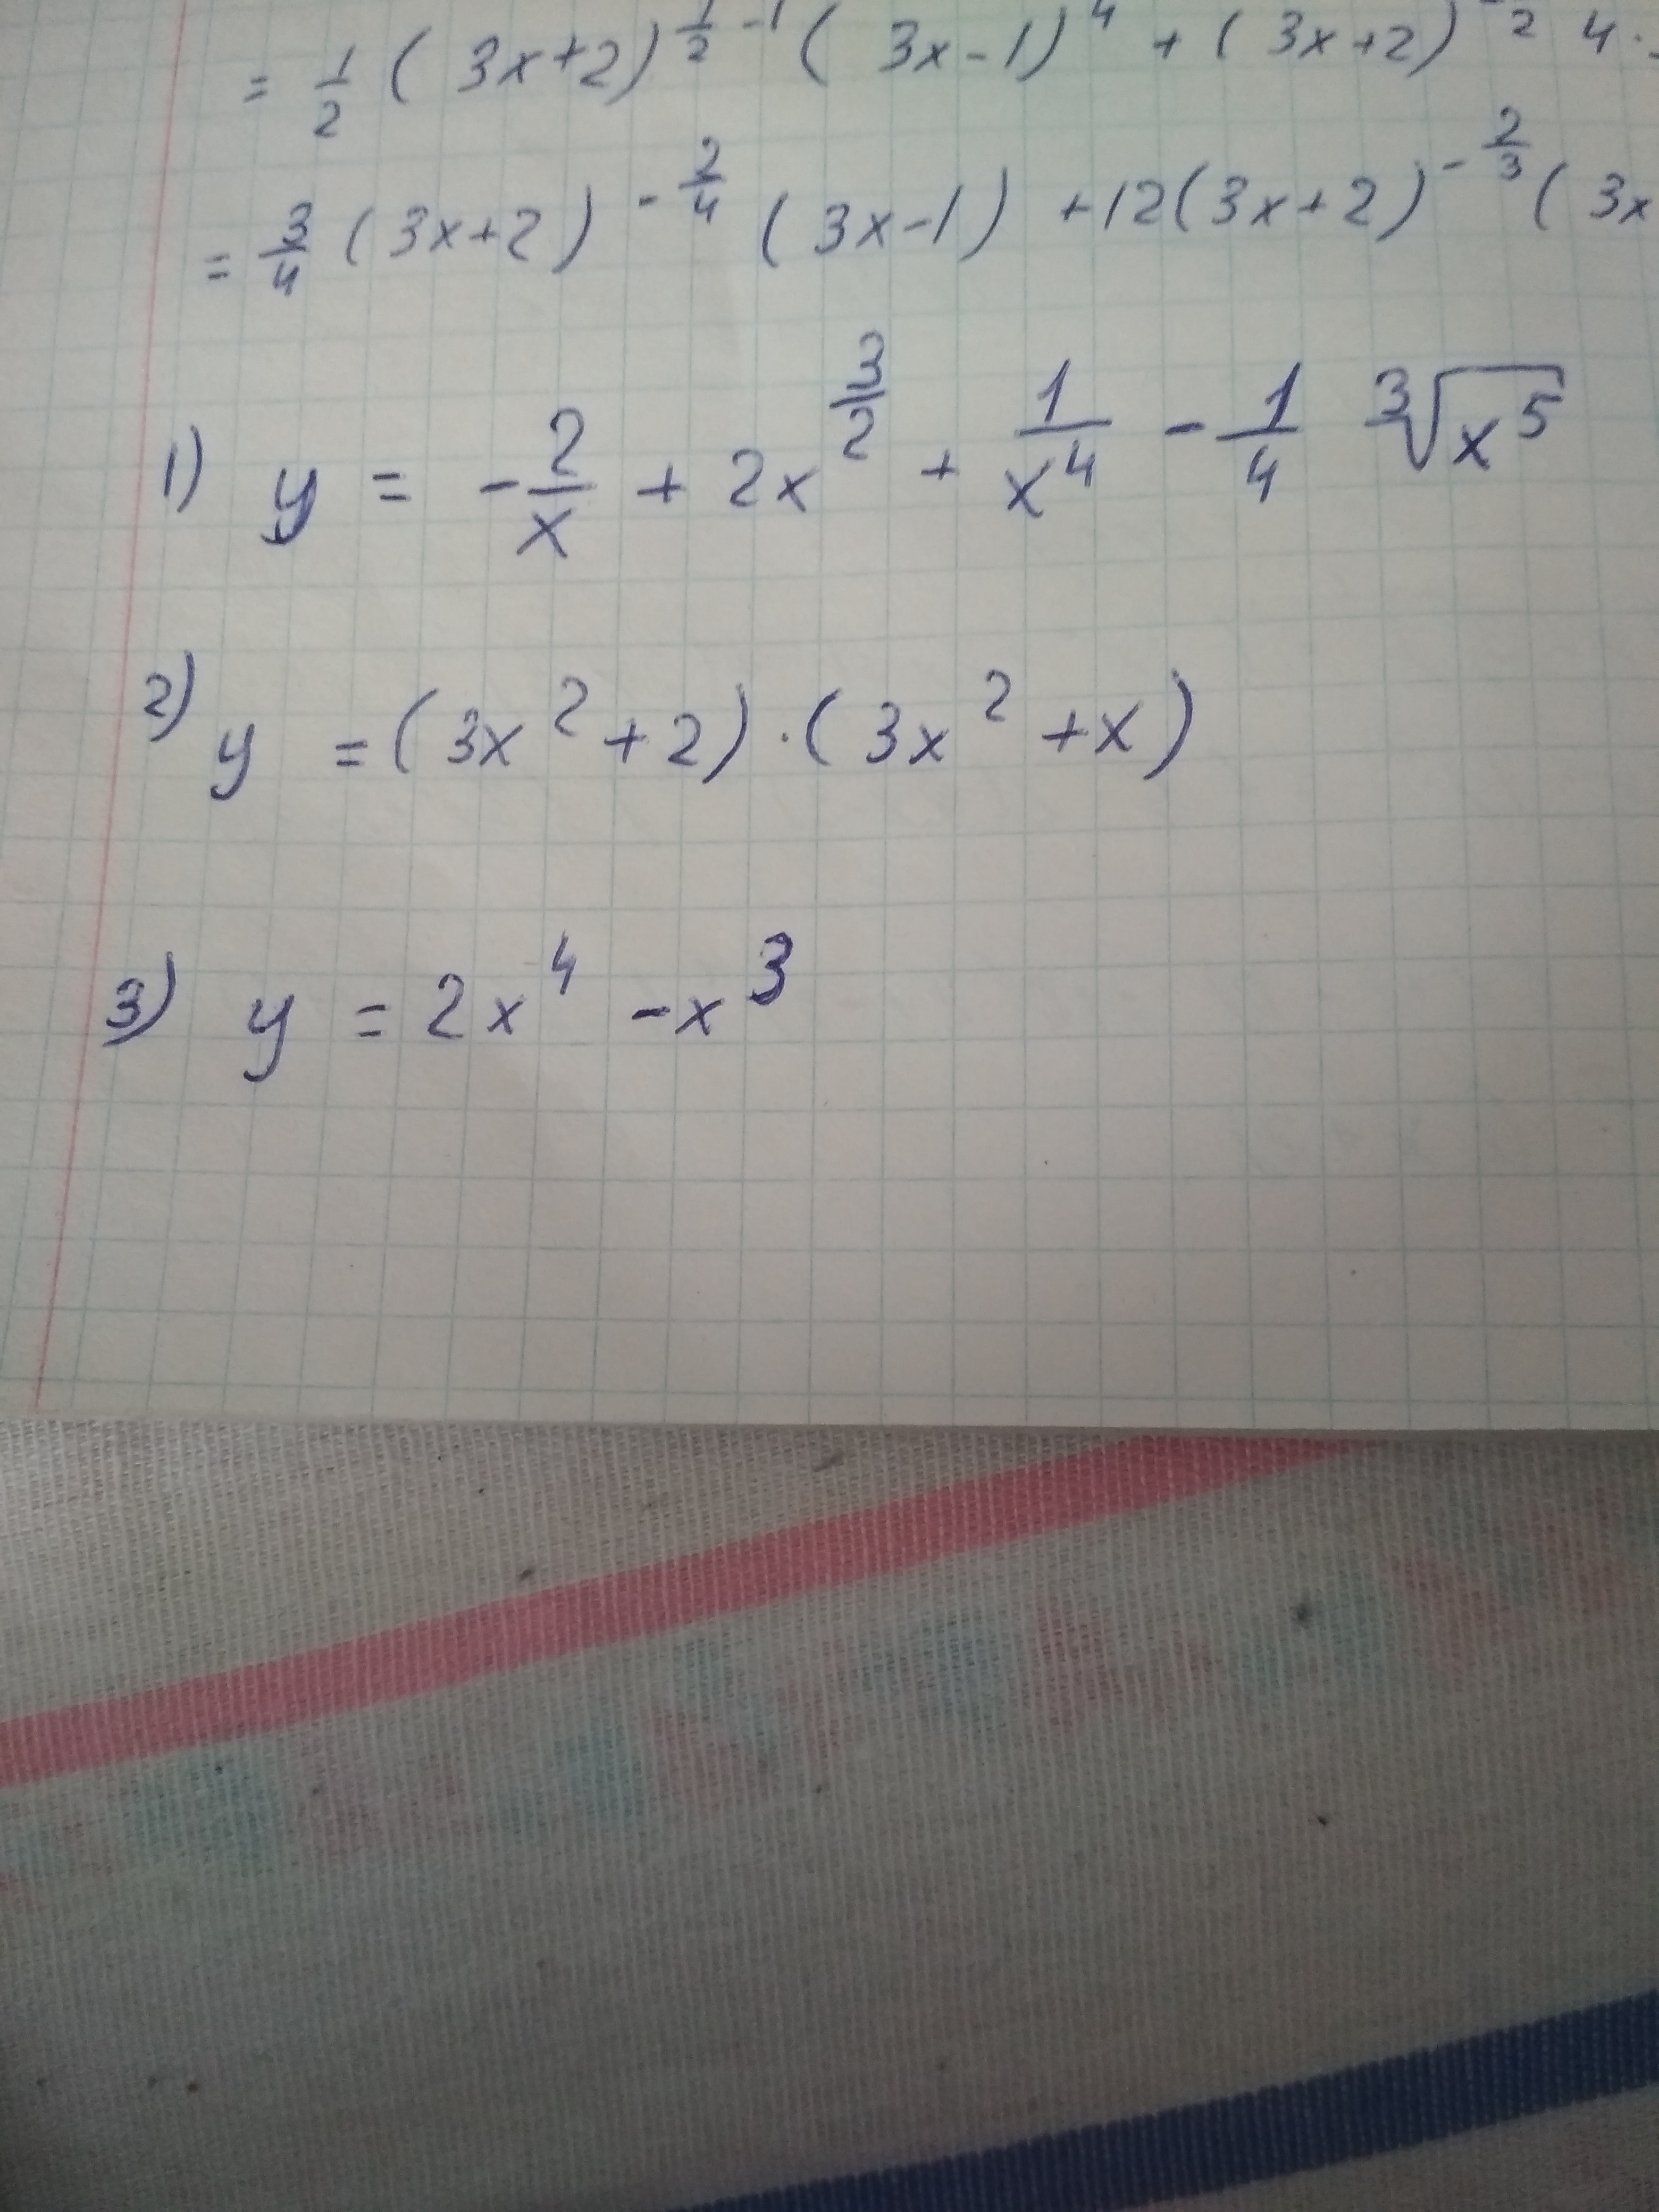 = 1/2 (3x+2)^(1/2 - 1) (3x-1)^4 + (3x+2) 4 ·
= 3/4 (3x+2)^(-2/4) (3x-1) + 12(3x+2)^(-2/3) (3x
1) y = -2/x + 2x^(3/2) + 1/x^4 - 1/4 ∛(x^5)
2) y = (3x^2 + 2) · (3x^2 + x)
3) y = 2x^4 - x^3